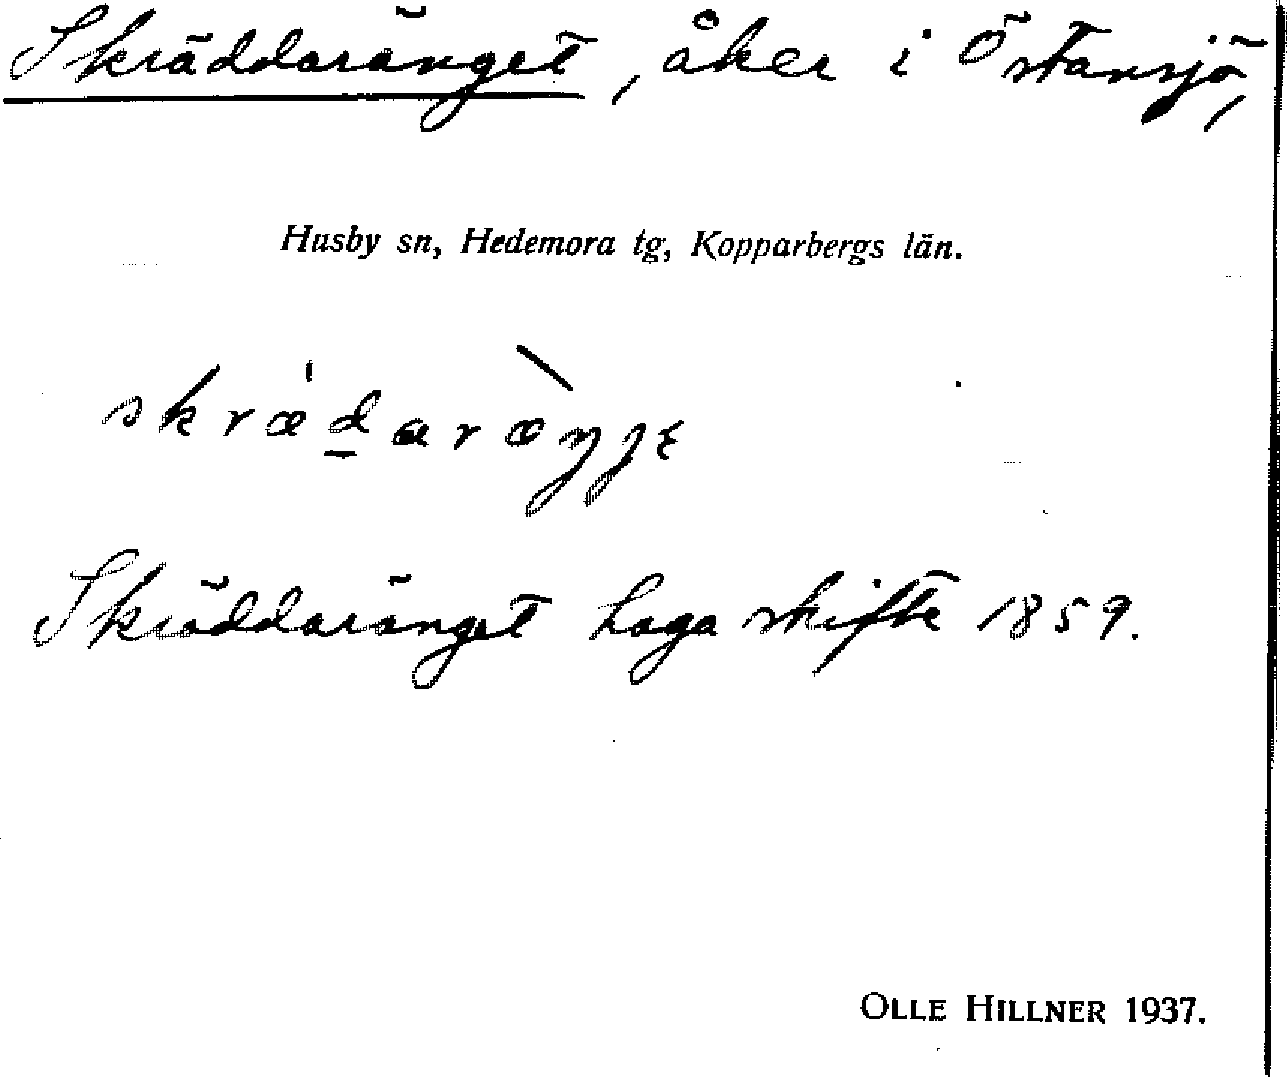 Skräddaränget, åker i Östansjö,
Husby sn, Hedemora tg, Kopparbergs län.
skræ̍d̲aræ̀ŋŋɛ
Skräddaränget Laga skifte 1859.
OLLE HILLNER 1937.